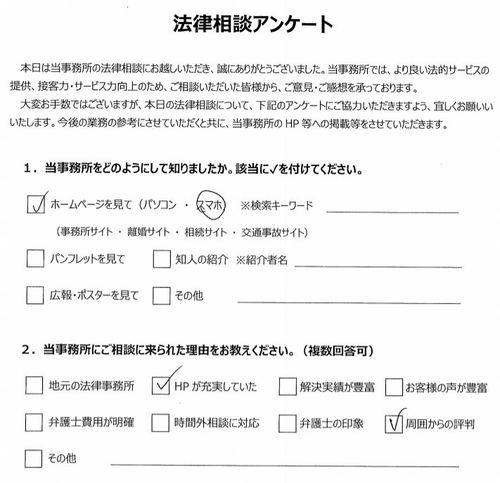 法律相談アンケート
本日は当事務所の法律相談にお越しいただき、誠にありがとうございました。当事務所では、より良い法的サービスの
提供、接客力・サービス力向上のため、ご相談いただいた皆様から、ご意見・ご感想を承っております。
大変お手数ではございますが、本日の法律相談について、下記のアンケートにご協力いただきますよう、宜しくお願いい
いたします。今後の業務の参考にさせていただくと共に、当事務所のHP等への掲載等をさせていただきます。
1．当事務所をどのようにして知りましたか。該当に✓を付けてください。
✓ ホームページを見て（パソコン ・ スマホ） ※検索キーワード
（事務所サイト ・ 離婚サイト ・ 相続サイト ・ 交通事故サイト）
□ パンフレットを見て □ 知人の紹介 ※紹介者名
□ 広報・ポスターを見て □ その他
2．当事務所にご相談に来られた理由をお教えください。（複数回答可）
□ 地元の法律事務所 ✓ HPが充実していた □ 解決実績が豊富 □ お客様の声が豊富
□ 弁護士費用が明確 □ 時間外相談に対応 □ 弁護士の印象 ✓ 周囲からの評判
□ その他